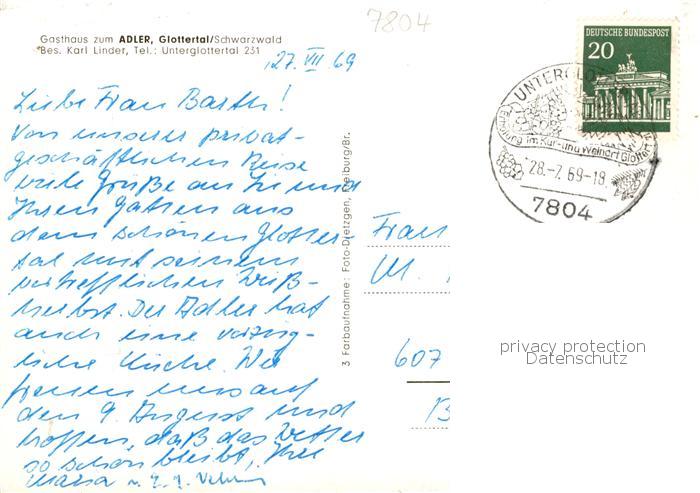 7804
Gasthaus zum ADLER, Glottertal/Schwarzwald
Bes. Karl Linder, Tel.: Unterglottertal 231
27. VII 69
Liebe Frau Barth!
Von unserer privat-
geschäftlichen Reise
viele Grüße an Sie und
Ihren Gatten aus
dem schönen Glotter-
tal mit seinem
vortrefflichen Weiß-
herbst. Der Adler hat
auch eine vorzüg-
liche Küche. Wir
freuen uns auf
den 9. August und
hoffen, daß das Wetter
so schön bleibt, Ihre
Maria u.
3 Farbaufnahme: Foto-Dietzgen, Freiburg/Br.
DEUTSCHE BUNDESPOST
20
UNTERGLO
Erholung im Kur- und Weinort Glottert
28.-7.69-18
7804
Frau
M.
607
privacy protection
Datenschutz